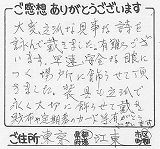 ご感想ありがとうございます
大変立派な見事な詩を
詠んで戴きました。有難うござい
ます。早速、安全な眼に
つく場所に飾らせて頂
きました。装具も立派で
永く大切に飾らせて戴き
ご住所 東京 都道府県 江東 市区町郡